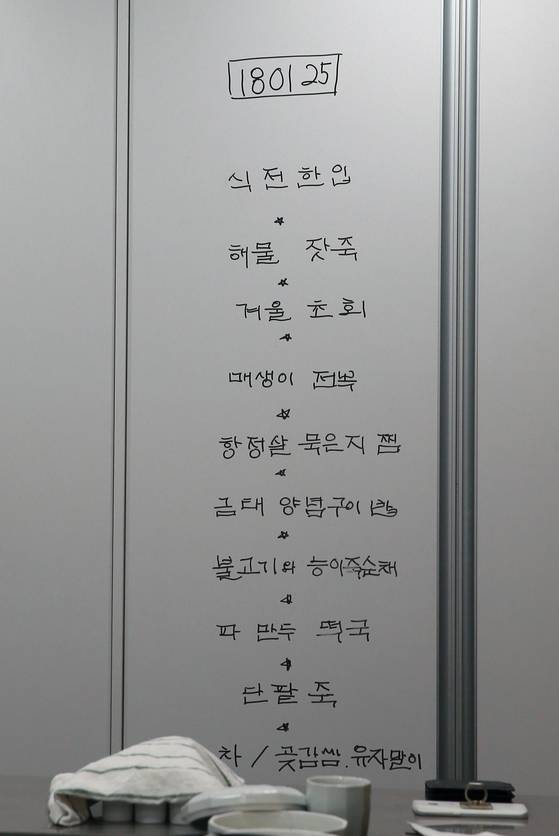 180125
식전한입
해물 잣죽
겨울 초회
매생이 전복
항정살 묵은지 찜
금태 양념구이
불고기와 능이죽순채
파 만두 떡국
단팥 죽
차 / 곶감쌈. 유자말이